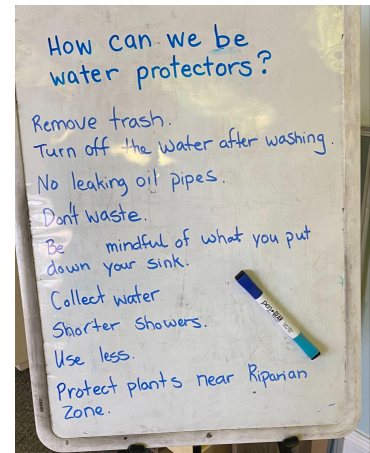 How can we be
water protectors?
Remove trash.
Turn off the water after washing.
No leaking oil pipes.
Don't waste.
Be mindful of what you put
down your sink.
Collect water
Shorter showers.
Use less.
Protect plants near Riparian
Zone.